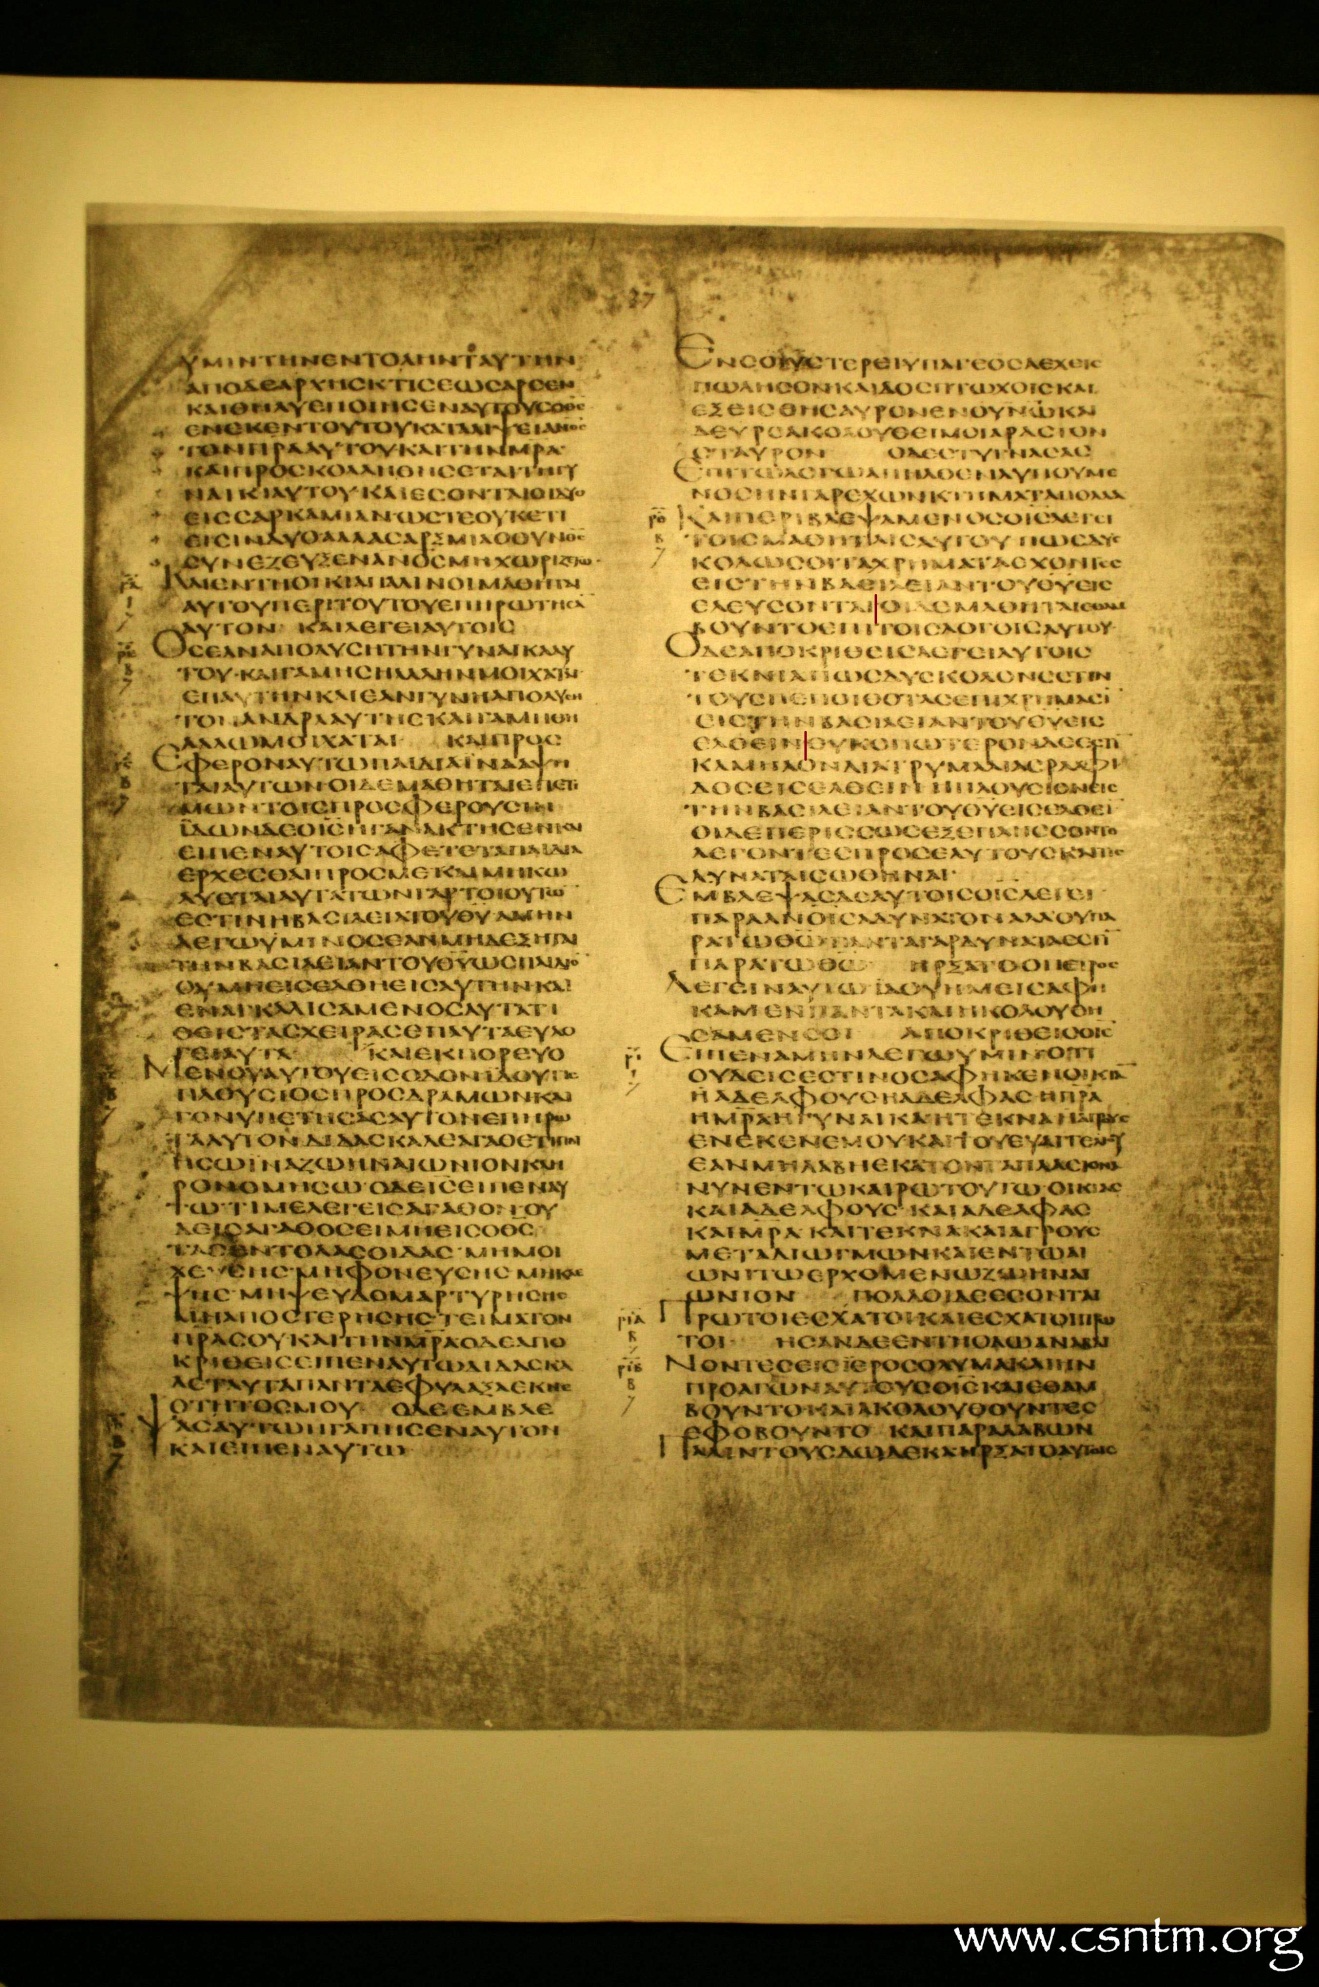 37
ΥΜΙΝΤΗΝΕΝΤΟΛΗΝΤΑΥΤΗΝ
ΑΠΟΔΕΑΡΧΗΣΚΤΙΣΕΩΣΑΡΣΕΝ
ΚΑΙΘΗΛΥΕΠΟΙΗΣΕΝΑΥΤΟΥΣΟΘΣ
ΕΝΕΚΕΝΤΟΥΤΟΥΚΑΤΑΛΙΨΕΙΑΝΟΣ
ΤΟΝΠΡΑΑΥΤΟΥΚΑΙΤΗΝΜΡΑ
ΚΑΙΠΡΟΣΚΟΛΛΗΘΗΣΕΤΑΙΤΗΓΥ
ΝΑΙΚΙΑΥΤΟΥΚΑΙΕΣΟΝΤΑΙΟΙΔΥΟ
ΕΙΣΣΑΡΚΑΜΙΑΝΩΣΤΕΟΥΚΕΤΙ
ΕΙΣΙΝΔΥΟΑΛΛΑΣΑΡΞΜΙΑΟΟΥΝΘΣ
ΣΥΝΕΖΕΥΞΕΝΑΝΟΣΜΗΧΩΡΙΖΕΤΩ
ΚΑΙΕΝΤΗΟΙΚΙΑΠΑΛΙΝΟΙΜΑΘΗΤΑΙ
ΑΥΤΟΥΠΕΡΙΤΟΥΤΟΥΕΠΗΡΩΤΗΣΑ
ΑΥΤΟΝ ΚΑΙΛΕΓΕΙΑΥΤΟΙΣ
ΟΣΕΑΝΑΠΟΛΥΣΗΤΗΝΓΥΝΑΙΚΑΑΥ
ΤΟΥ·ΚΑΙΓΑΜΗΣΗΑΛΛΗΝΜΟΙΧΑΤΑΙ
ΕΠΑΥΤΗΝΚΑΙΕΑΝΓΥΝΗΑΠΟΛΥΣΗ
ΤΟΝΑΝΔΡΑΑΥΤΗΣΚΑΙΓΑΜΗΘΗ
ΑΛΛΩΜΟΙΧΑΤΑΙ ΚΑΙΠΡΟΣ
ΕΦΕΡΟΝΑΥΤΩΠΑΙΔΙΑΙΝΑΑΨΗ
ΤΑΙΑΥΤΩΝΟΙΔΕΜΑΘΗΤΑΙΕΠΕΤΙ
ΜΩΝΤΟΙΣΠΡΟΣΦΕΡΟΥΣΙΝ
ΙΔΩΝΔΕΟΙΣΗΓΑΝΑΚΤΗΣΕΝΚΑΙ
ΕΙΠΕΝΑΥΤΟΙΣΑΦΕΤΕΤΑΠΑΙΔΙΑ
ΕΡΧΕΣΘΑΙΠΡΟΣΜΕΚΑΙΜΗΚΩ
ΛΥΕΤΑΙΑΥΤΑΤΩΝΓΑΡΤΟΙΟΥΤΩ
ΕΣΤΙΝΗΒΑΣΙΛΕΙΑΤΟΥΘΥΑΜΗΝ
ΛΕΓΩΥΜΙΝΟΣΕΑΝΜΗΔΕΞΗΤΑΙ
ΤΗΝΒΑΣΙΛΕΙΑΝΤΟΥΘΥΩΣΠΑΙΔΙΟ
ΟΥΜΗΕΙΣΕΛΘΗΕΙΣΑΥΤΗΝΚΑΙ
ΕΝΑΓΚΑΛΙΣΑΜΕΝΟΣΑΥΤΑΤΙ
ΘΕΙΣΤΑΣΧΕΙΡΑΣΕΠΑΥΤΑΕΥΛΟ
ΓΕΙΑΥΤΑ ΚΑΙΕΚΠΟΡΕΥΟ
ΜΕΝΟΥΑΥΤΟΥΕΙΣΟΔΟΝΙΔΟΥΤΙΣ
ΠΛΟΥΣΙΟΣΠΡΟΣΔΡΑΜΩΝΚΑΙ
ΓΟΝΥΠΕΤΗΣΑΣΑΥΤΟΝΕΠΗΡΩ
ΤΑΑΥΤΟΝΔΙΔΑΣΚΑΛΕΑΓΑΘΕΤΙΠΟΙ
ΗΣΩΙΝΑΖΩΗΝΑΙΩΝΙΟΝΚΛΗ
ΡΟΝΟΜΗΣΩ ΟΔΕΙΣΕΙΠΕΝΑΥ
ΤΩΤΙΜΕΛΕΓΕΙΣΑΓΑΘΟΝΟΥ
ΔΕΙΣΑΓΑΘΟΣΕΙΜΗΕΙΣΟΘΣ
ΤΑΣΕΝΤΟΛΑΣΟΙΔΑΣ·ΜΗΜΟΙ
ΧΕΥΣΗΣ·ΜΗΦΟΝΕΥΣΗΣΜΗΚΛΕ
ΨΗΣ·ΜΗΨΕΥΔΟΜΑΡΤΥΡΗΣΗΣ
ΜΗΑΠΟΣΤΕΡΗΣΗΣΤΕΙΜΑΤΟΝ
ΠΡΑΣΟΥΚΑΙΤΗΝΜΡΑΟΔΕΑΠΟ
ΚΡΙΘΕΙΣΕΙΠΕΝΑΥΤΩΔΙΔΑΣΚΑ
ΛΕΤΑΥΤΑΠΑΝΤΑΕΦΥΛΑΞΑΕΚΝΕ
ΟΤΗΤΟΣΜΟΥ ΟΔΕΕΜΒΛΕ
ΨΑΣΑΥΤΩΗΓΑΠΗΣΕΝΑΥΤΟΝ
ΚΑΙΕΙΠΕΝΑΥΤΩ
ΕΝΣΟΙΥΣΤΕΡΕΙΥΠΑΓΕΟΣΑΕΧΕΙΣ
ΠΩΛΗΣΟΝΚΑΙΔΟΣΠΤΩΧΟΙΣΚΑΙ
ΕΞΕΙΣΘΗΣΑΥΡΟΝΕΝΟΥΝΩΚΑΙ
ΔΕΥΡΟΑΚΟΛΟΥΘΕΙΜΟΙΑΡΑΣΤΟΝ
ΣΤΑΥΡΟΝ ΟΔΕΣΤΥΓΝΑΣΑΣ
ΕΠΙΤΩΛΟΓΩΑΠΗΛΘΕΝΛΥΠΟΥΜΕ
ΝΟΣΗΝΓΑΡΕΧΩΝΚΤΗΜΑΤΑΠΟΛΛΑ
ΚΑΙΠΕΡΙΒΛΕΨΑΜΕΝΟΣΟΙΣΛΕΓΕΙ
ΤΟΙΣΜΑΘΗΤΑΙΣΑΥΤΟΥΠΩΣΔΥΣ
ΚΟΛΩΣΟΙΤΑΧΡΗΜΑΤΑΕΧΟΝΤΕΣ
ΕΙΣΤΗΝΒΑΣΙΛΕΙΑΝΤΟΥΘΥΕΙΣ
ΕΛΕΥΣΟΝΤΑΙΟΙΔΕΜΑΘΗΤΑΙΕΘΑΜ
ΒΟΥΝΤΟΕΠΙΤΟΙΣΛΟΓΟΙΣΑΥΤΟΥ·
ΟΔΕΑΠΟΚΡΙΘΕΙΣΛΕΓΕΙΑΥΤΟΙΣ
ΤΕΚΝΙΑΠΩΣΔΥΣΚΟΛΟΝΕΣΤΙΝ
ΤΟΥΣΠΕΠΟΙΘΟΤΑΣΕΠΙΧΡΗΜΑΣΙ
ΕΙΣΤΗΝΒΑΣΙΛΕΙΑΝΤΟΥΘΥΕΙΣ
ΕΛΘΕΙΝΕΥΚΟΠΩΤΕΡΟΝΔΕΕΣΤΙ
ΚΑΜΗΛΟΝΔΙΑΤΡΥΜΑΛΙΑΣΡΑΦΙ
ΔΟΣΕΙΣΕΛΘΕΙΝΗΠΛΟΥΣΙΟΝΕΙΣ
ΤΗΝΒΑΣΙΛΕΙΑΝΤΟΥΘΥΕΙΣΕΛΘΕΙ
ΟΙΔΕΠΕΡΙΣΣΩΣΕΞΕΠΛΗΣΣΟΝΤΟ
ΛΕΓΟΝΤΕΣΠΡΟΣΕΑΥΤΟΥΣΚΑΙΤΙΣ
ΔΥΝΑΤΑΙΣΩΘΗΝΑΙ·
ΕΜΒΛΕΨΑΣΔΕΑΥΤΟΙΣΟΙΣΛΕΓΕΙ
ΠΑΡΑΑΝΟΙΣΑΔΥΝΑΤΟΝΑΛΛΟΥΠΑ
ΡΑΤΩΘΩΠΑΝΤΑΓΑΡΔΥΝΑΤΑΕΣΤΙ
ΠΑΡΑΤΩΘΩ ΗΡΞΑΤΟΟΠΕΤΡΟΣ
ΛΕΓΕΙΝΑΥΤΩΙΔΟΥΗΜΕΙΣΑΦΗ
ΚΑΜΕΝΠΑΝΤΑΚΑΙΗΚΟΛΟΥΘΗ
ΣΑΜΕΝΣΟΙ ΑΠΟΚΡΙΘΕΙΣΟΙΣ
ΕΙΠΕΝΑΜΗΝΛΕΓΩΥΜΙΝΟΤΙ
ΟΥΔΕΙΣΕΣΤΙΝΟΣΑΦΗΚΕΝΟΙΚΙΑ
ΗΑΔΕΛΦΟΥΣΗΑΔΕΛΦΑΣΗΠΡΑ
ΗΜΡΑΗΓΥΝΑΙΚΑΗΤΕΚΝΑΗΑΓΡΟΥΣ
ΕΝΕΚΕΝΕΜΟΥΚΑΙΤΟΥΕΥΑΓΓΕΛΙΟΥ
ΕΑΝΜΗΛΑΒΗΕΚΑΤΟΝΤΑΠΛΑΣΙΟΝΑ
ΝΥΝΕΝΤΩΚΑΙΡΩΤΟΥΤΩΟΙΚΙΑΣ
ΚΑΙΑΔΕΛΦΟΥΣ·ΚΑΙΑΔΕΛΦΑΣ
ΚΑΙΜΡΑ·ΚΑΙΤΕΚΝΑΚΑΙΑΓΡΟΥΣ
ΜΕΤΑΔΙΩΓΜΩΝΚΑΙΕΝΤΩΑΙ
ΩΝΙΤΩΕΡΧΟΜΕΝΩΖΩΗΝΑΙ
ΩΝΙΟΝ ΠΟΛΛΟΙΔΕΕΣΟΝΤΑΙ
ΠΡΩΤΟΙΕΣΧΑΤΟΙΚΑΙΕΣΧΑΤΟΙΠΡΩ
ΤΟΙ· ΗΣΑΝΔΕΕΝΤΗΟΔΩΑΝΑΒΑΙ
ΝΟΝΤΕΣΕΙΣΙΕΡΟΣΟΛΥΜΑΚΑΙΗΝ
ΠΡΟΑΓΩΝΑΥΤΟΥΣΟΙΣΚΑΙΕΘΑΜ
ΒΟΥΝΤΟΚΑΙΑΚΟΛΟΥΘΟΥΝΤΕΣ
ΕΦΟΒΟΥΝΤΟ ΚΑΙΠΑΡΑΛΑΒΩΝ
ΠΑΛΙΝΤΟΥΣΔΩΔΕΚΑΗΡΞΑΤΟΑΥΤΟΙΣ
www.csntm.org